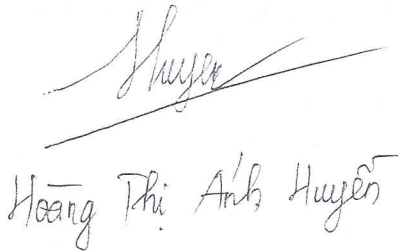 Huyen
Hoàng Thị Ánh Huyền